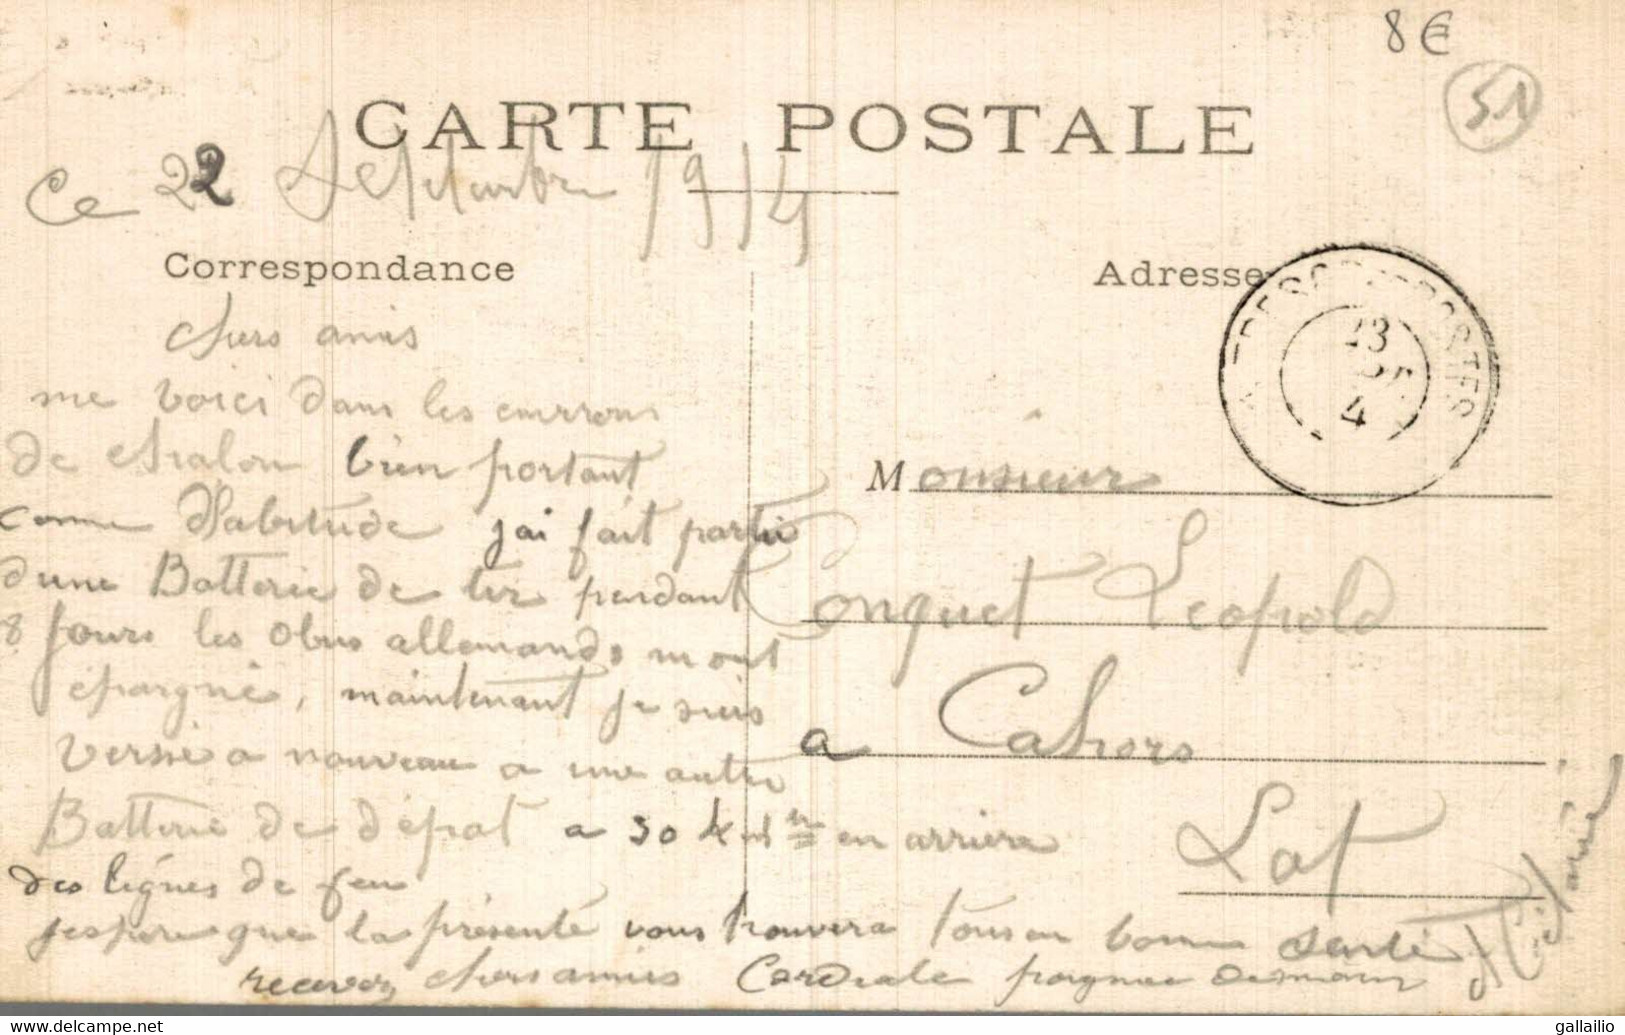 8 €
51
CARTE POSTALE
Ce 22 Septembre 1914
Correspondance
Adresse
23
4
chers amis
me voici dans les environs
de chalon bien portant
comme d'abitude jai fait partie
dune Batterie de tir pendant
8 jours les obus allemands mont
épargné, maintenant je suis
versé a nouveau a une autre
Batterie de dépot a 30 en arriere
des lignes de feu
jespere que la présente vous trouvera tous en bonne santé
recevez chers amis Cordiale poignee de main
Monsieur
Conquet Leopold
a Cahors
Lot
delcampe.net
gallailio